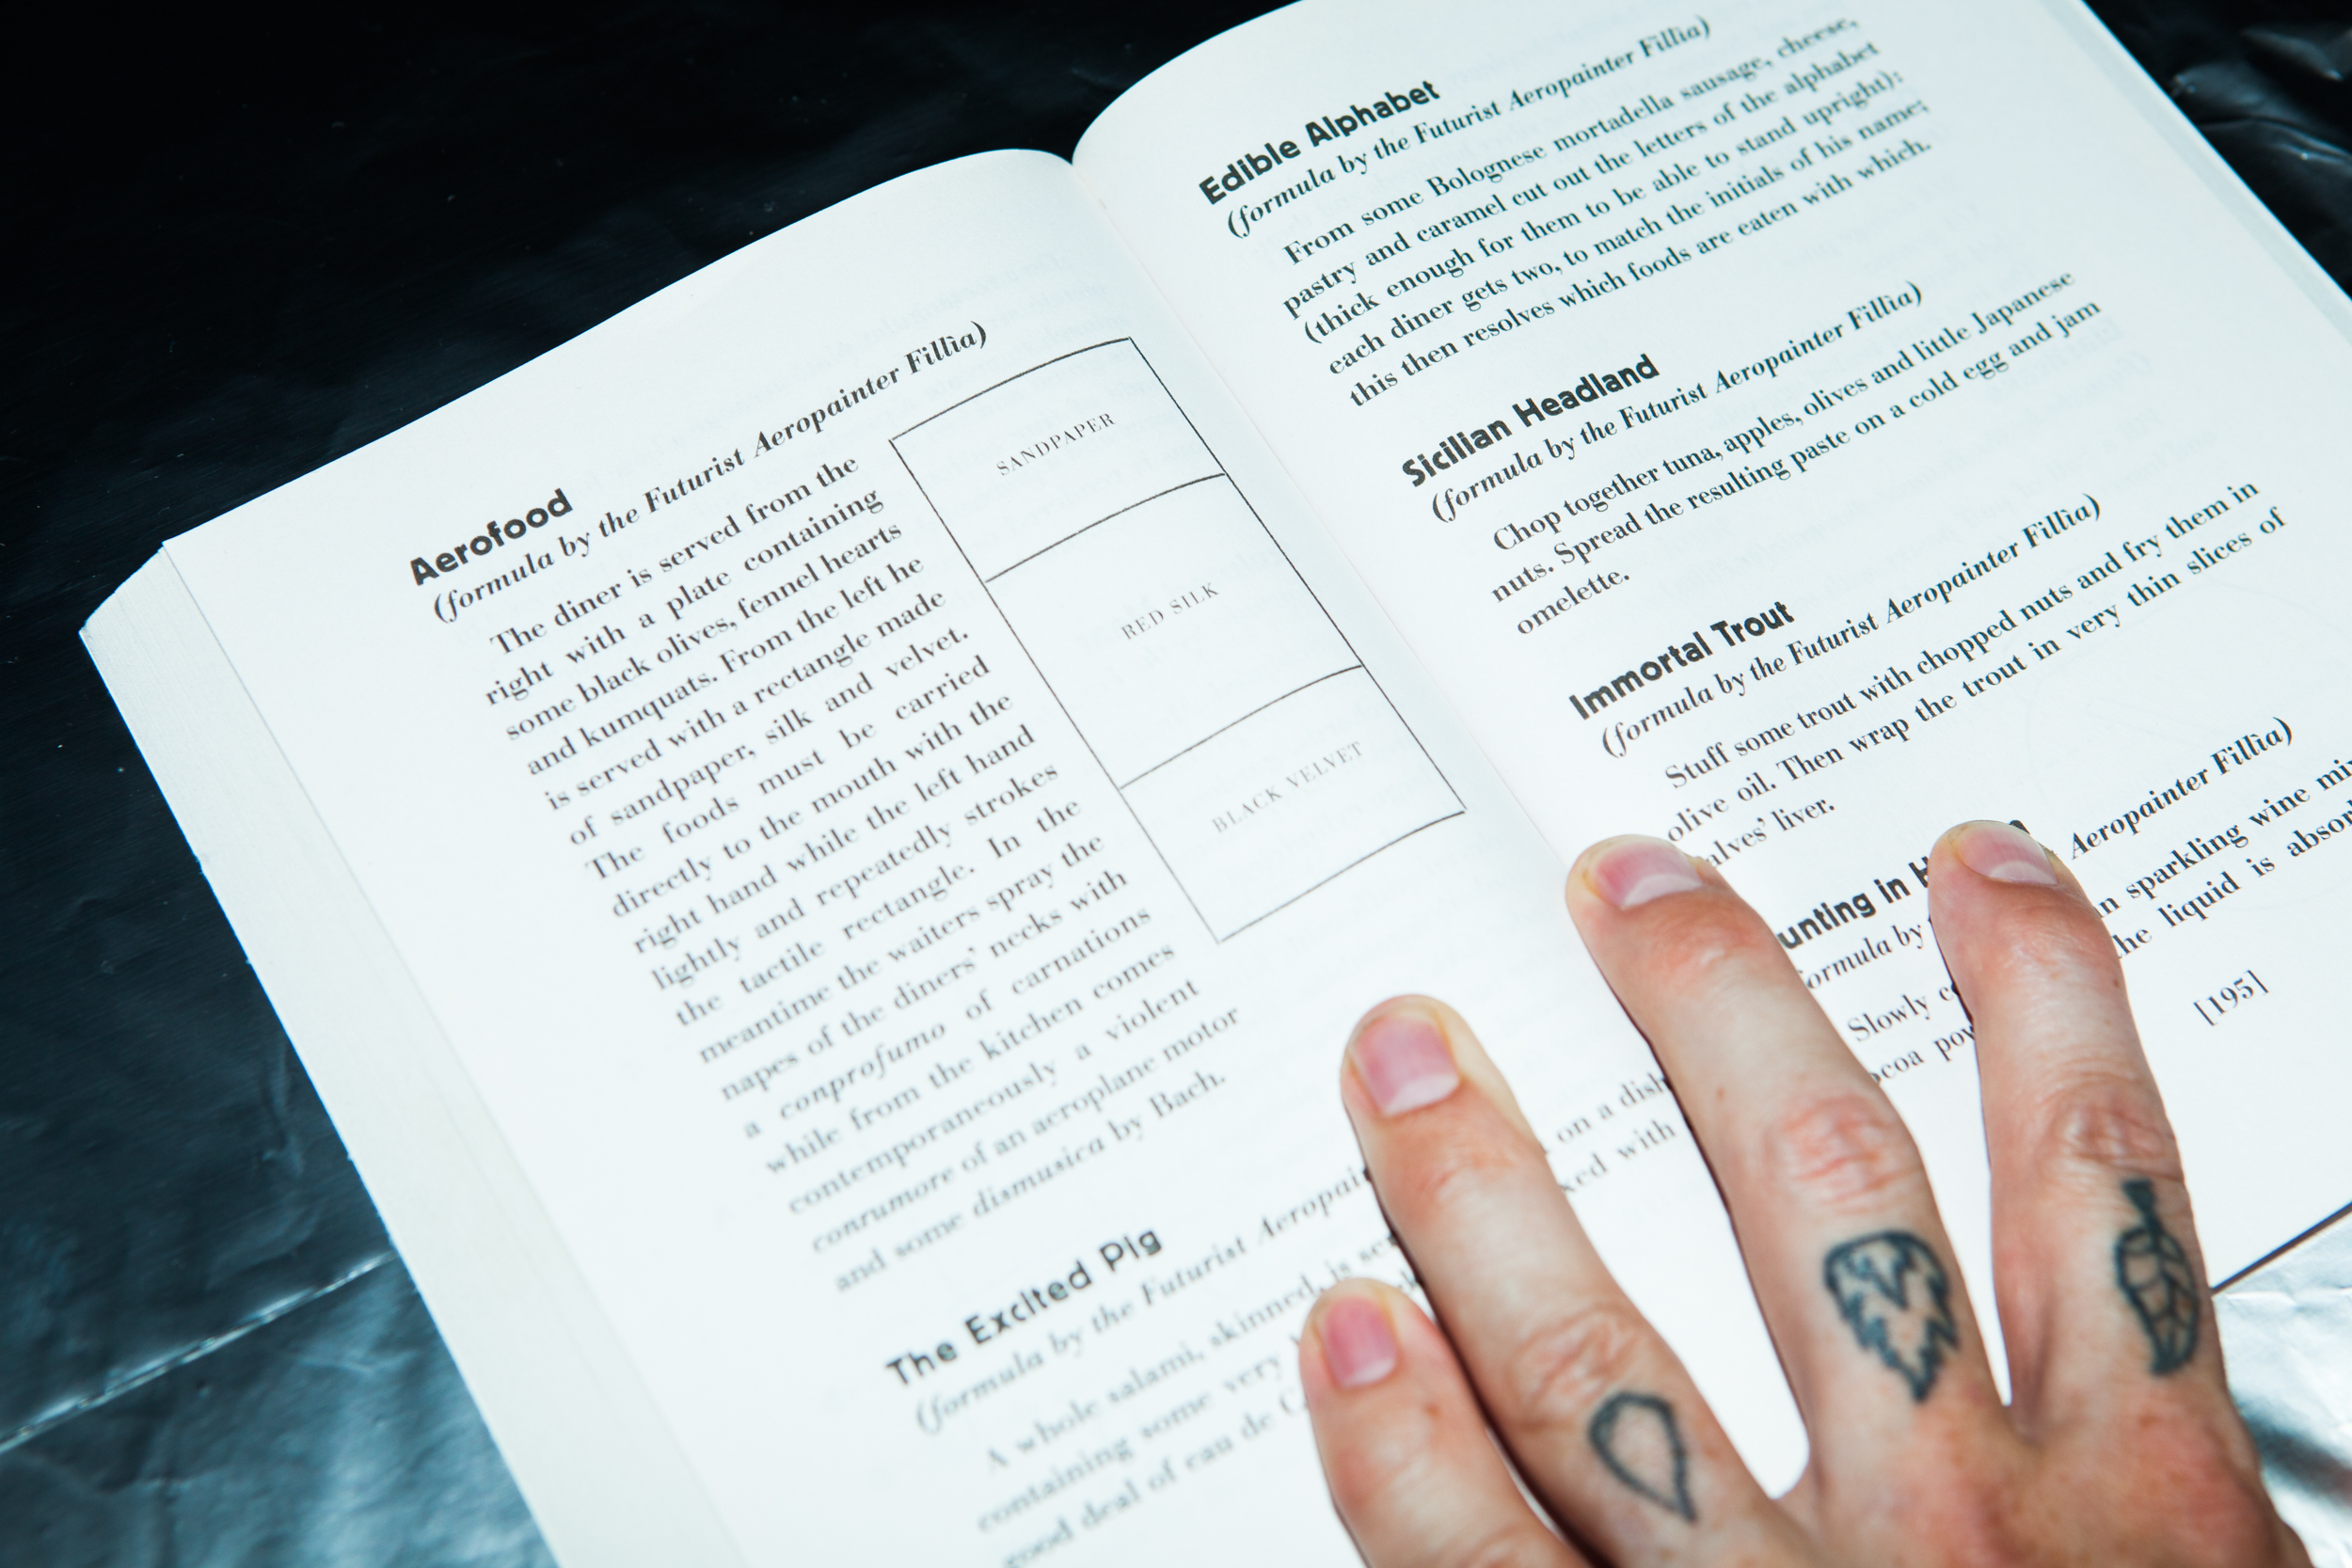 Aerofood
(formula by the Futurist Aeropainter Fillìa)
The diner is served from the
right with a plate containing
some black olives, fennel hearts
and kumquats. From the left he
is served with a rectangle made
of sandpaper, silk and velvet.
The foods must be carried
directly to the mouth with the
right hand while the left hand
lightly and repeatedly strokes
the tactile rectangle. In the
meantime the waiters spray the
napes of the diners' necks with
a conprofumo of carnations
while from the kitchen comes
contemporaneously a violent
conrumore of an aeroplane motor
and some dismusica by Bach.
SANDPAPER
RED SILK
BLACK VELVET
The Excited Pig
(formula by the Futurist Aeropai
A whole salami, skinned, is ser on a dish
containing some very ked with
good deal of eau de C
Edible Alphabet
(formula by the Futurist Aeropainter Fillìa)
From some Bolognese mortadella sausage, cheese,
pastry and caramel cut out the letters of the alphabet
(thick enough for them to be able to stand upright):
each diner gets two, to match the initials of his name;
this then resolves which foods are eaten with which.
Sicilian Headland
(formula by the Futurist Aeropainter Fillìa)
Chop together tuna, apples, olives and little Japanese
nuts. Spread the resulting paste on a cold egg and jam
omelette.
Immortal Trout
(formula by the Futurist Aeropainter Fillìa)
Stuff some trout with chopped nuts and fry them in
olive oil. Then wrap the trout in very thin slices of
alves' liver.
unting in H
formula by Aeropainter Fillìa)
Slowly c in sparkling wine mi
ocoa pow he liquid is absor
[195]